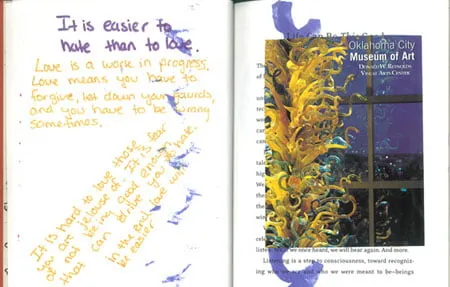 It is easier to
hate than to love.
Love is a work in progress.
Love means you have to
forgive, let down your gaurds,
and you have to be wrong
sometimes.
It is hard to love those
you are jelouse of. It is fear
of not being good enough
that can drive you to hate.
In the end love will
be easier.
Life Can Be This Good
Oklahoma City
Museum of Art
Donald W. Reynolds
Visual Arts Center
we once heard, we will hear again. And more.
Listening is a step to consciousness, toward recogniz-
ing who we are and who we were meant to be–beings